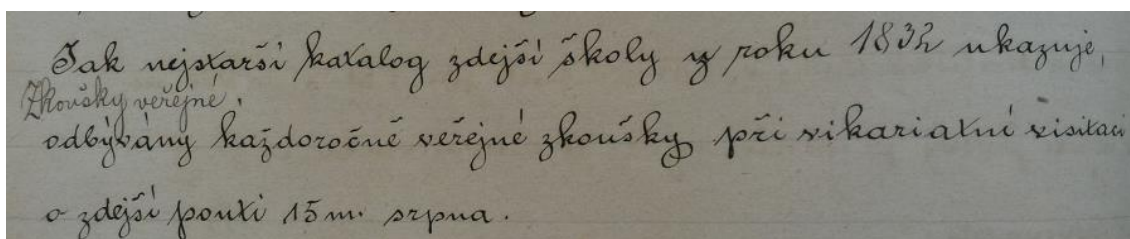 Jak nejstarší katalog zdejší školy z roku 1832 ukazuje,
Zkoušky veřejné.
odbývány každoročně veřejné zkoušky při vikariatní visitaci
o zdejší pouti 15 m. srpna.